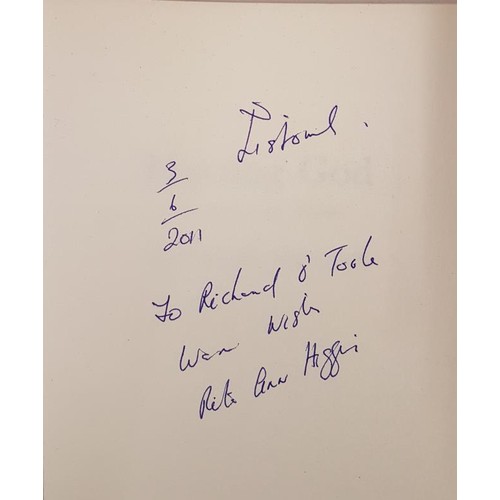 Listowel.
3
6
2011
To Richard O'Toole
Warm Wishes
Rita Ann Higgins